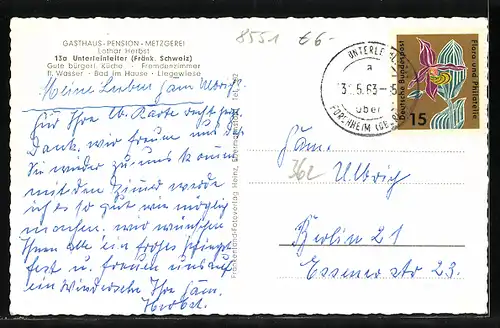 GASTHAUS-PENSION-METZGEREI
Lothar Herbst
13a Unterleinleiter (Fränk. Schweiz)
Gute bürgerl. Küche - Fremdenzimmer
fl. Wasser - Bad im Hause - Liegewiese
8551 €6-
Meine Lieben Fam Ulbrig.
Für Ihre lb. Karte recht herzl.
Dank. wir freuen uns das
Sie wieder zu uns kommen
mit den Zimer werde
ich es so gut wie möglich
machen. wir wünschen
Ihnen alle ein frohes
fest u. freuen uns auf
ein wiedersehn Ihre Fam.
Herbst.
Frankenland-Fotoverlag Heinz
UNTERLE
a
31.5.63-
über
FORCHHEIM (OB
Flora und Philatelie
Deutsche Bundespost
15
Fam.
362 Ulbrig
Berlin 21
Essener Str 23.